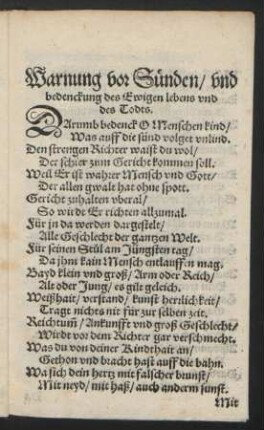 Warnung vor Sünden/ vnd
bedenckung des Ewigen lebens vnd
des Todts.
DArumb bedenck O Menschen kind/
Was auff die sünd volget vnlind.
Den strengen Richter waist du wol/
Der schier zum Gericht kommen soll.
Weil Er ist wahrer Mensch vnd Gott/
Der allen gwalt hat ohne spott.
Gericht zuhalten vberal/
So wirdt Er richten allzumal.
Für jn da werden dargestelt/
Alle Geschlecht der gantzen Welt.
Für seinen Stůl am Jüngsten tag/
Da jhm kain Mensch entlauffen mag.
Bayd klein vnd groß/ Arm oder Reich/
Alt oder Jung/ es gilt gleich.
Weißhait/ verstand/ kunst herrlichkeit/
Tragt nichts nit für zur selben zeit.
Reichtum̃/ Ankunfft vnd groß Geschlecht/
Wirdt vor dem Richter gar verschmecht.
Was du von deiner Kindthait an/
Gethon vnd bracht hast auff die bahn.
Wa sich dein hertz mit falscher brunst/
Mit neyd/ mit haß/ auch anderm sunst.
Mit